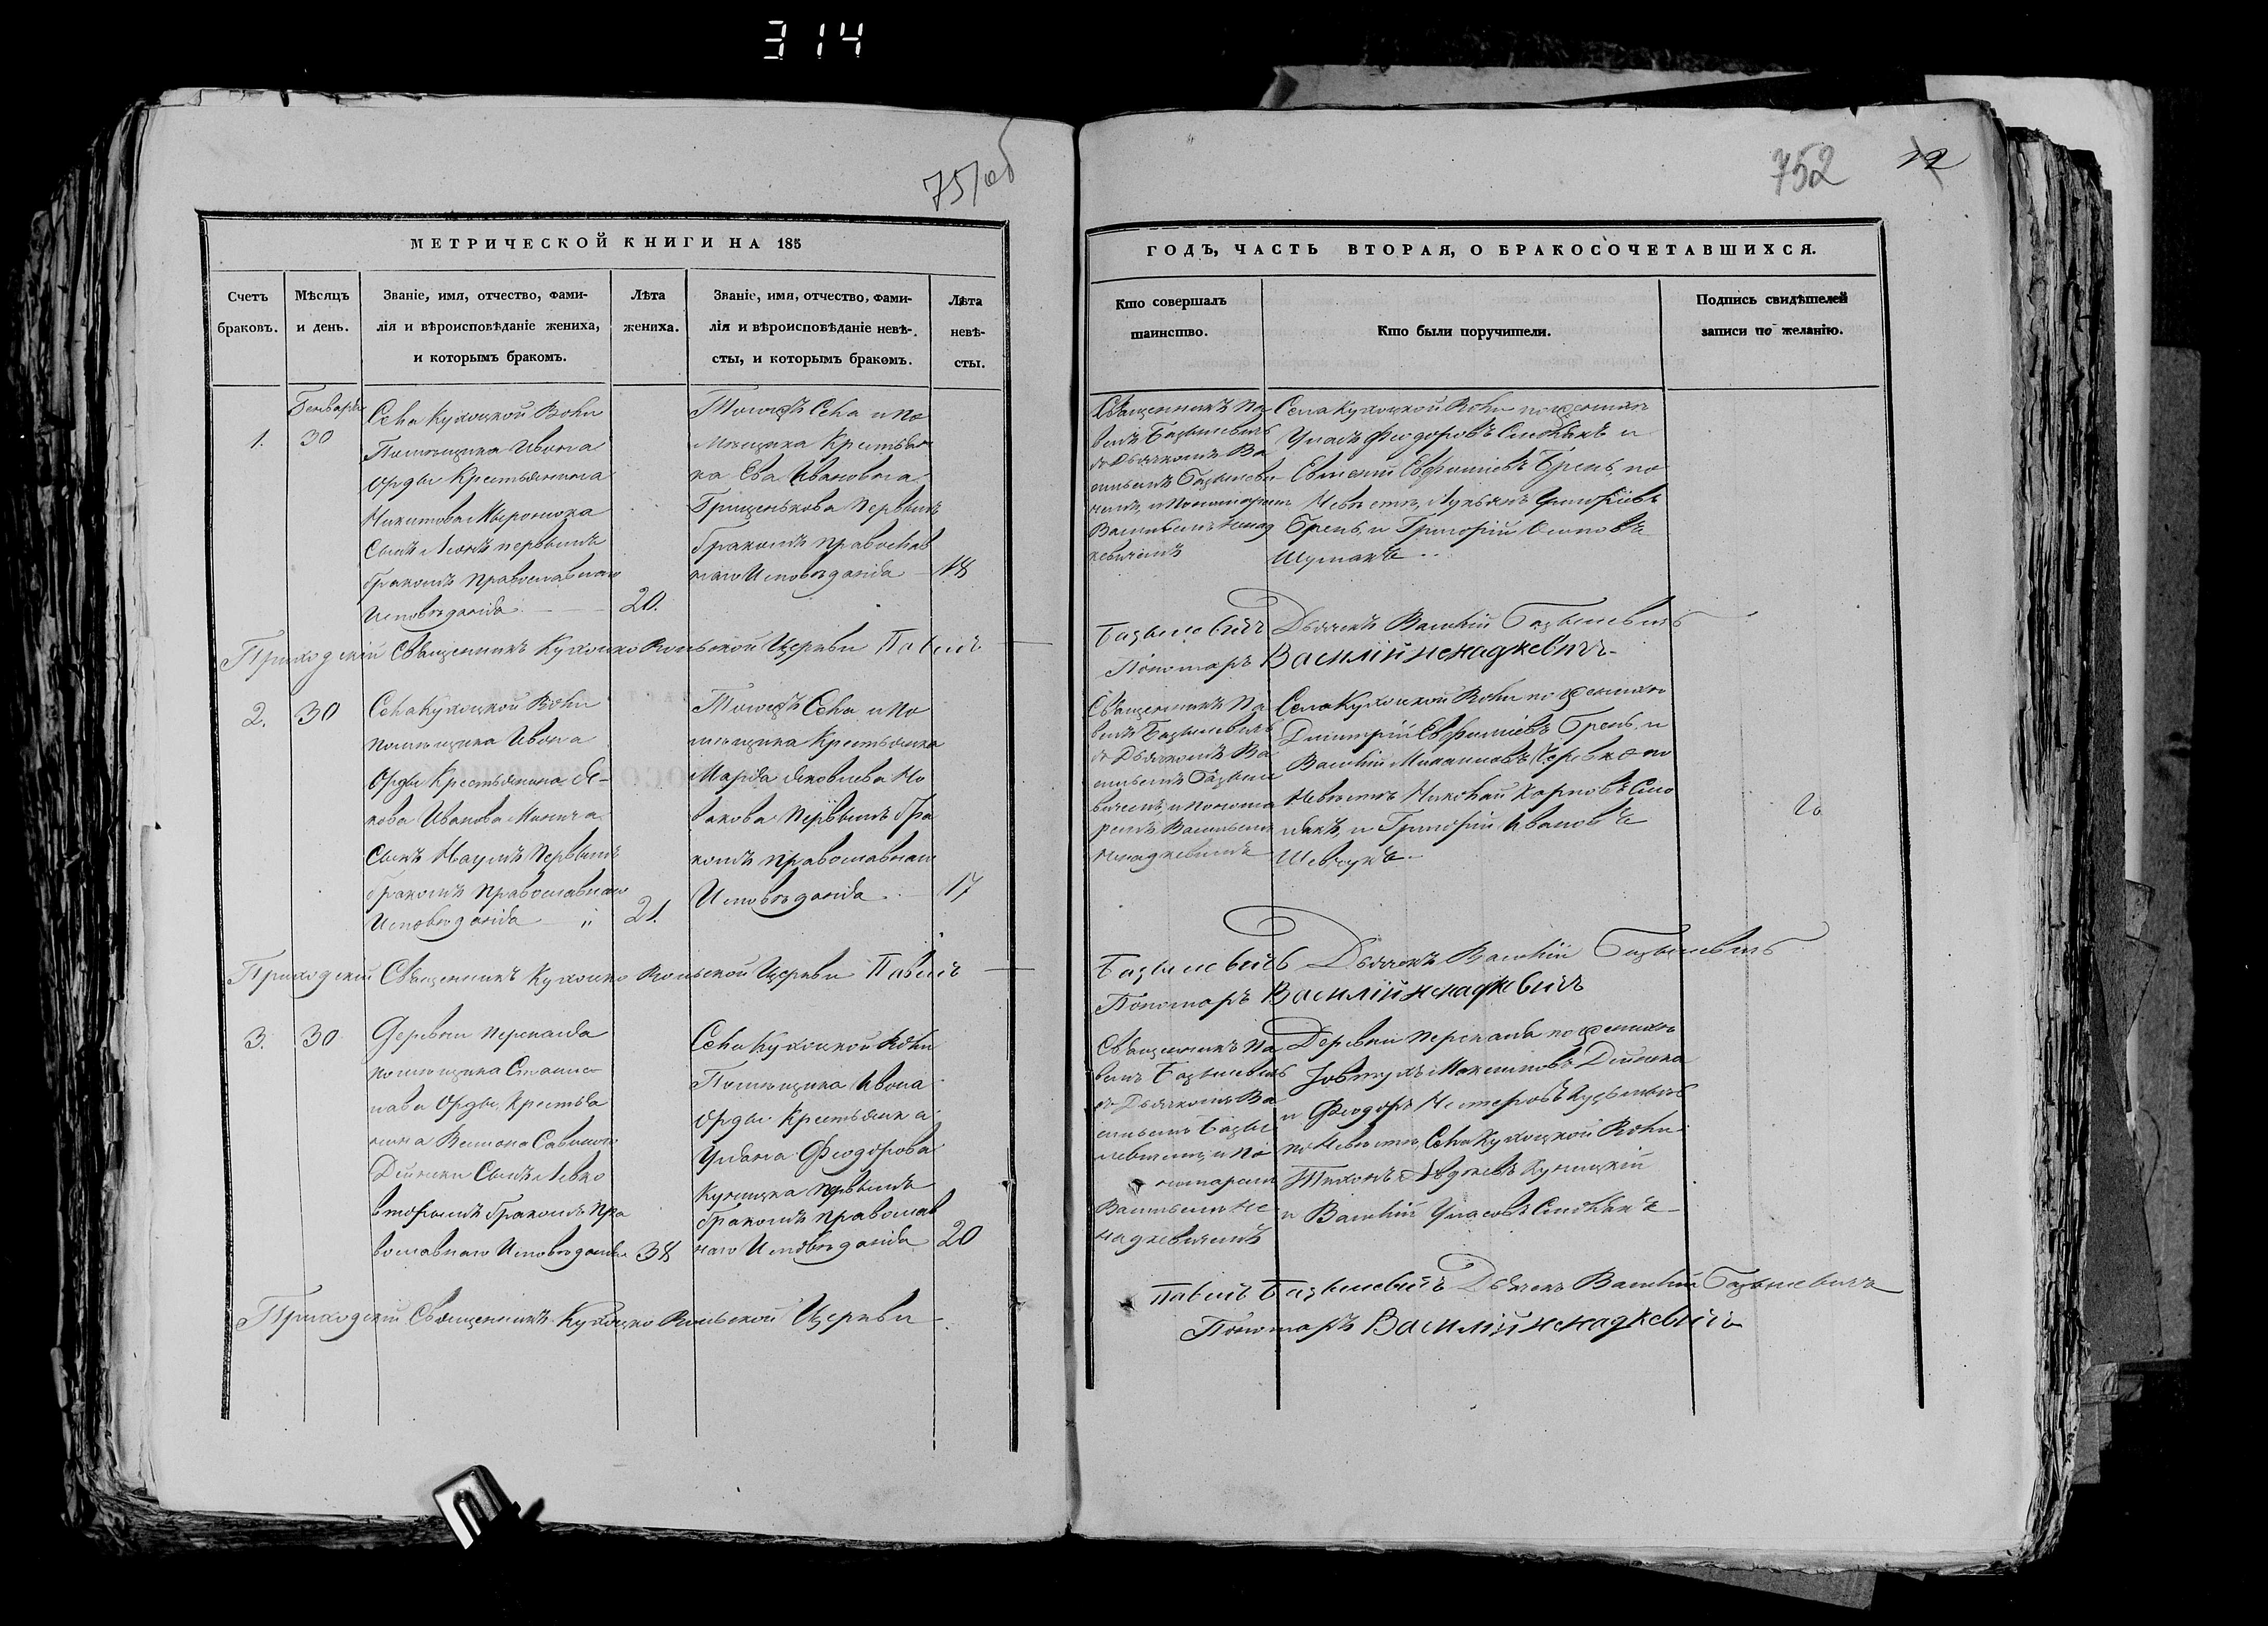 314
751об
752
12
МЕТРИЧЕСКОЙ КНИГИ НА 185
Счетъ браковъ.
Мѣсяцъ и день.
Званіе, имя, отчество, фами-
лія и вѣроисповѣданіе жениха,
и которымъ бракомъ.
Лѣта
жениха.
Званіе, имя, отчество, фами-
лія и вѣроисповѣданіе невѣ-
сты, и которымъ бракомъ.
Лѣта
невѣ-
сты.
ГОДЪ, ЧАСТЬ ВТОРАЯ, О БРАКОСОЧЕТАВШИХСЯ.
Кто совершалъ
таинство.
Кто были поручители.
Подпись свидѣтелей
записи по желанію.
1.
30
Села Кухоцкой Воли
Помѣщика Ивона
Орды Крестьянина
Никитова Миронюка
Сынъ Леонъ первымъ
бракомъ Православнаго
Исповѣданія
20.
Тогожъ Села и По
мѣщика Крестьян
ка Ева Иванова
Грищенькова Первымъ
бракомъ Православ
наго Исповѣданія
18
Священникъ Па
велъ Базылевичъ
съ Дьячкомъ Ва
сильемъ Базылеви
чемъ, и Пономаремъ
Васильемъ Ненад
кевичемъ
Села Кухоцкой Воли по женихѣ
Уласъ Феодоровъ и
Евфиміевъ Грень, по
Невѣстѣ, Лукьянъ
Грень, и Григорій Осиповъ
Шумакъ
Приходскій Священникъ Кухоцко Вольской Церкви Павелъ
Базылевичъ Дьячекъ Василій Базылевичъ
Пономарь Василій Ненадкевичъ
2.
30
Села Кухоцкой Воли
помѣщика Ивона
Орды Крестьянина Я-
кова Иванова
Сынъ Наумъ Первымъ
бракомъ Православнаго
Исповѣданія
21.
Тогожъ Села и По
мѣщика Крестьянка
Марія Яковлева Но
вакова Первымъ бра
комъ Православнаго
Исповѣданія
17
Священникъ Па
велъ Базылевичъ
съ Дьячкомъ Ва
сильемъ Базыле
вичемъ, и Понома
ремъ Васильемъ
Ненадкевичемъ
Села Кухоцкой Воли по женихѣ
Димитрій Евфиміевъ Грень, и
Василій по
Невѣстѣ Николай Карповъ
и Григорій Ивановъ
Шевчукъ
Приходскій Священникъ Кухоцко Вольской Церкви Павелъ
Базылевичъ Дьячекъ Василій Базылевичъ
Пономарь Василій Ненадкевичъ
3.
30
Деревни
помѣщика Станис
лава Орды, Крестья
нина
Сынъ Левко
вторымъ бракомъ Пра
вославнаго Исповѣданія
38
Села Кухоцкой Воли
Помѣщика Ивона
Орды Крестьянка
Уліана Феодорова
Куницка первымъ
бракомъ Православ
наго Исповѣданія
20
Священникъ Па
велъ Базылевичъ
съ Дьячкомъ Ва
сильемъ Базы
левичемъ, и По
номаремъ
Васильемъ Не
надкевичемъ
Деревни по женихѣ
и Феодоръ Нестеровъ
по Невѣстѣ, Села Кухоцкой Воли
Тихонъ Куницкій
и Василій Уласовъ
Приходскій Священникъ Кухоцко Вольской Церкви
Павелъ Базылевичъ Дьячекъ Василій Базылевичъ
Пономарь Василій Ненадкевичъ